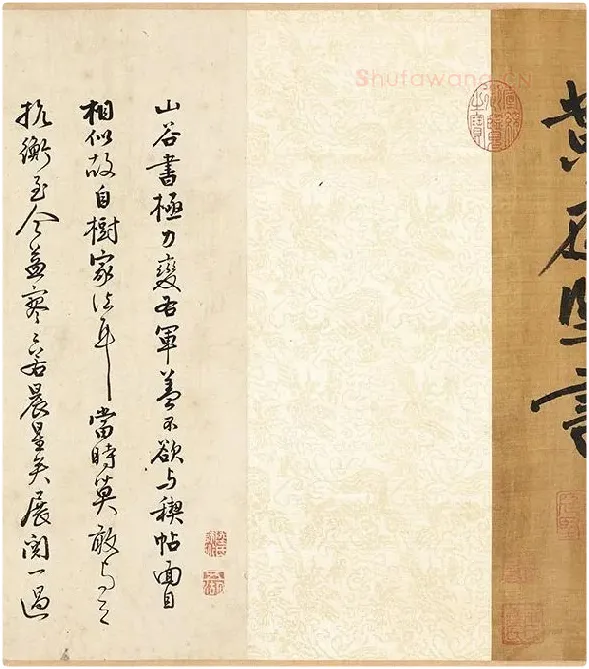 Shufawang.CN
宣統御覽之寶
黄庭堅書
山谷書極力變右軍蓋不欲与稧帖面目
相似故自樹家法耳當時莫敢与之
抗衡至今益寥〻若晨星矣展閱一過